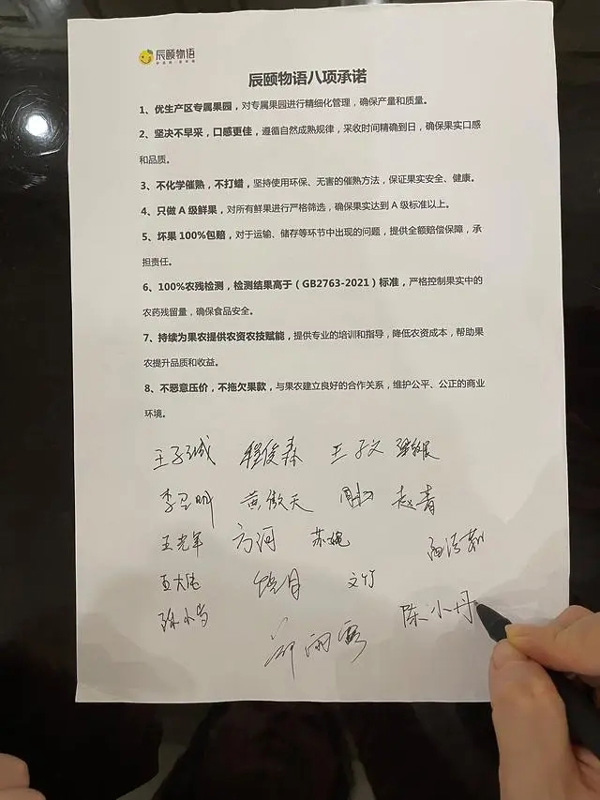 辰颐物语
辰颐物语八项承诺
1、优生产区专属果园，对专属果园进行精细化管理，确保产量和质量。
2、坚决不早采，口感更佳，遵循自然成熟规律，采收时间精确到日，确保果实口感
和品质。
3、不化学催熟，不打蜡，坚持使用环保、无害的催熟方法，保证果实安全、健康。
4、只做 A 级鲜果，对所有鲜果进行严格筛选，确保果实达到 A 级标准以上。
5、坏果 100%包赔，对于运输、储存等环节中出现的问题，提供全额赔偿保障，承
担责任。
6、100%农残检测，检测结果高于（GB2763-2021）标准，严格控制果实中的
农药残留量，确保食品安全。
7、持续为果农提供农资农技赋能，提供专业的培训和指导，降低农资成本，帮助果
农提升品质和收益。
8、不恶意压价，不拖欠果款，与果农建立良好的合作关系，维护公平、公正的商业
环境。
王子诚 程俊森 王子文
黄傲天 赵青
王光军 方河 苏婉
文竹
陈小丹